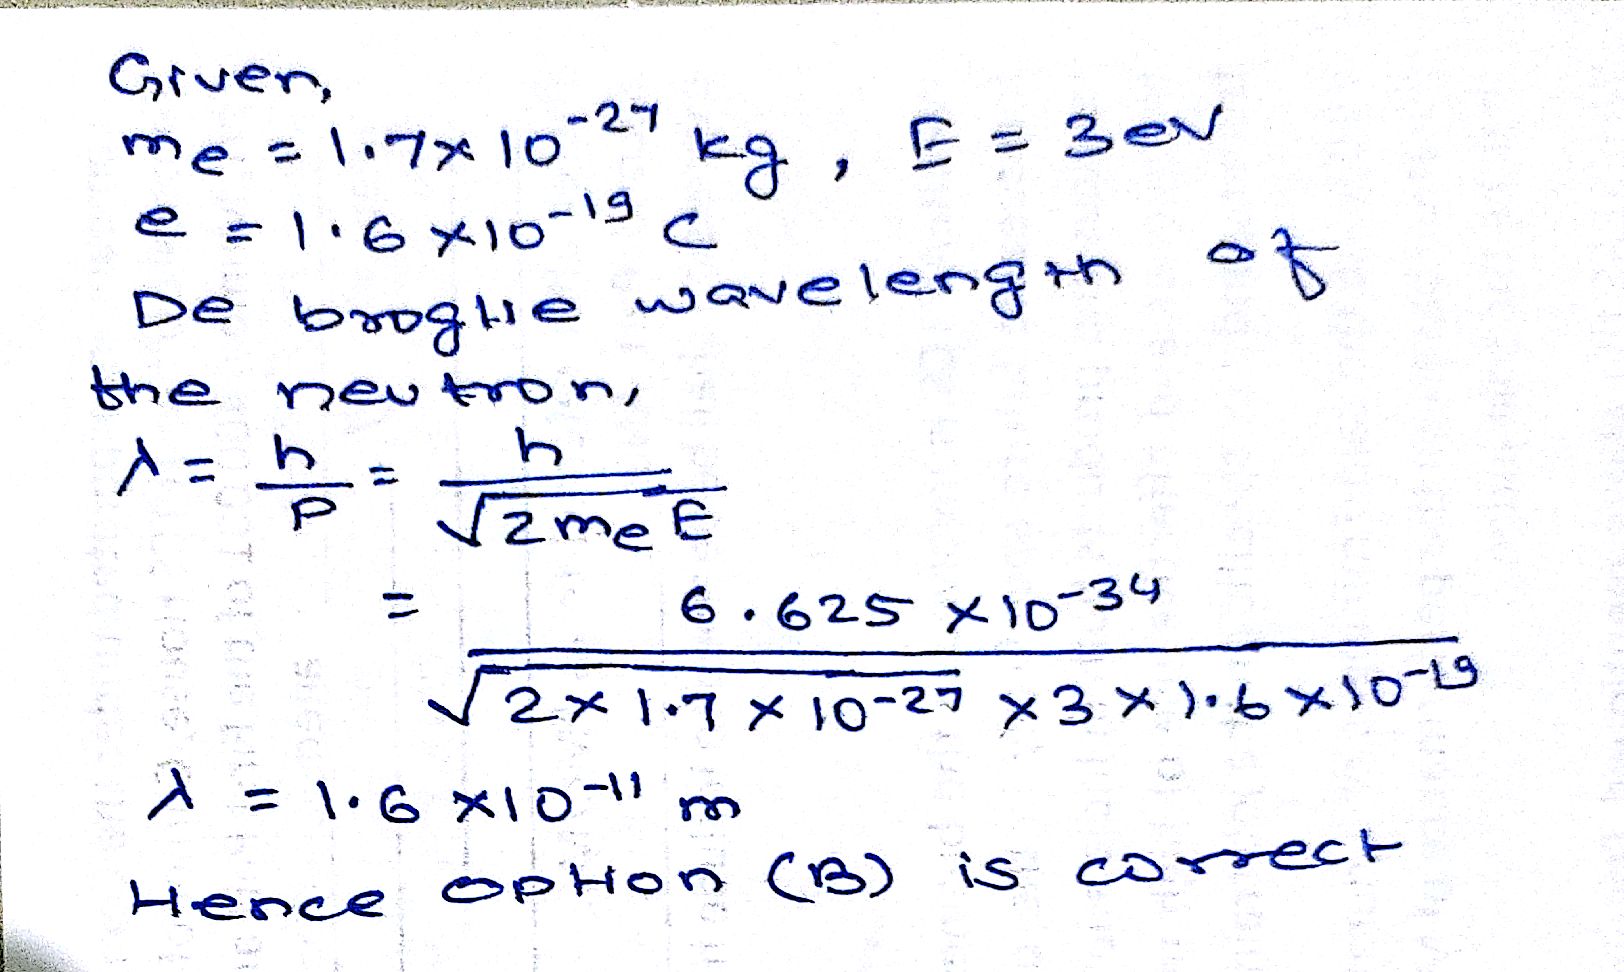 Given,
me = 1.7 × 10⁻²⁷ kg , E = 3 ev
e = 1.6 × 10⁻¹⁹ C
De broglie wavelength of
the neutron,
λ = h/P = h/√2meE
= 6.625 × 10⁻³⁴ / √2 × 1.7 × 10⁻²⁷ × 3 × 1.6 × 10⁻¹⁹
λ = 1.6 × 10⁻¹¹ m
Hence option (B) is correct